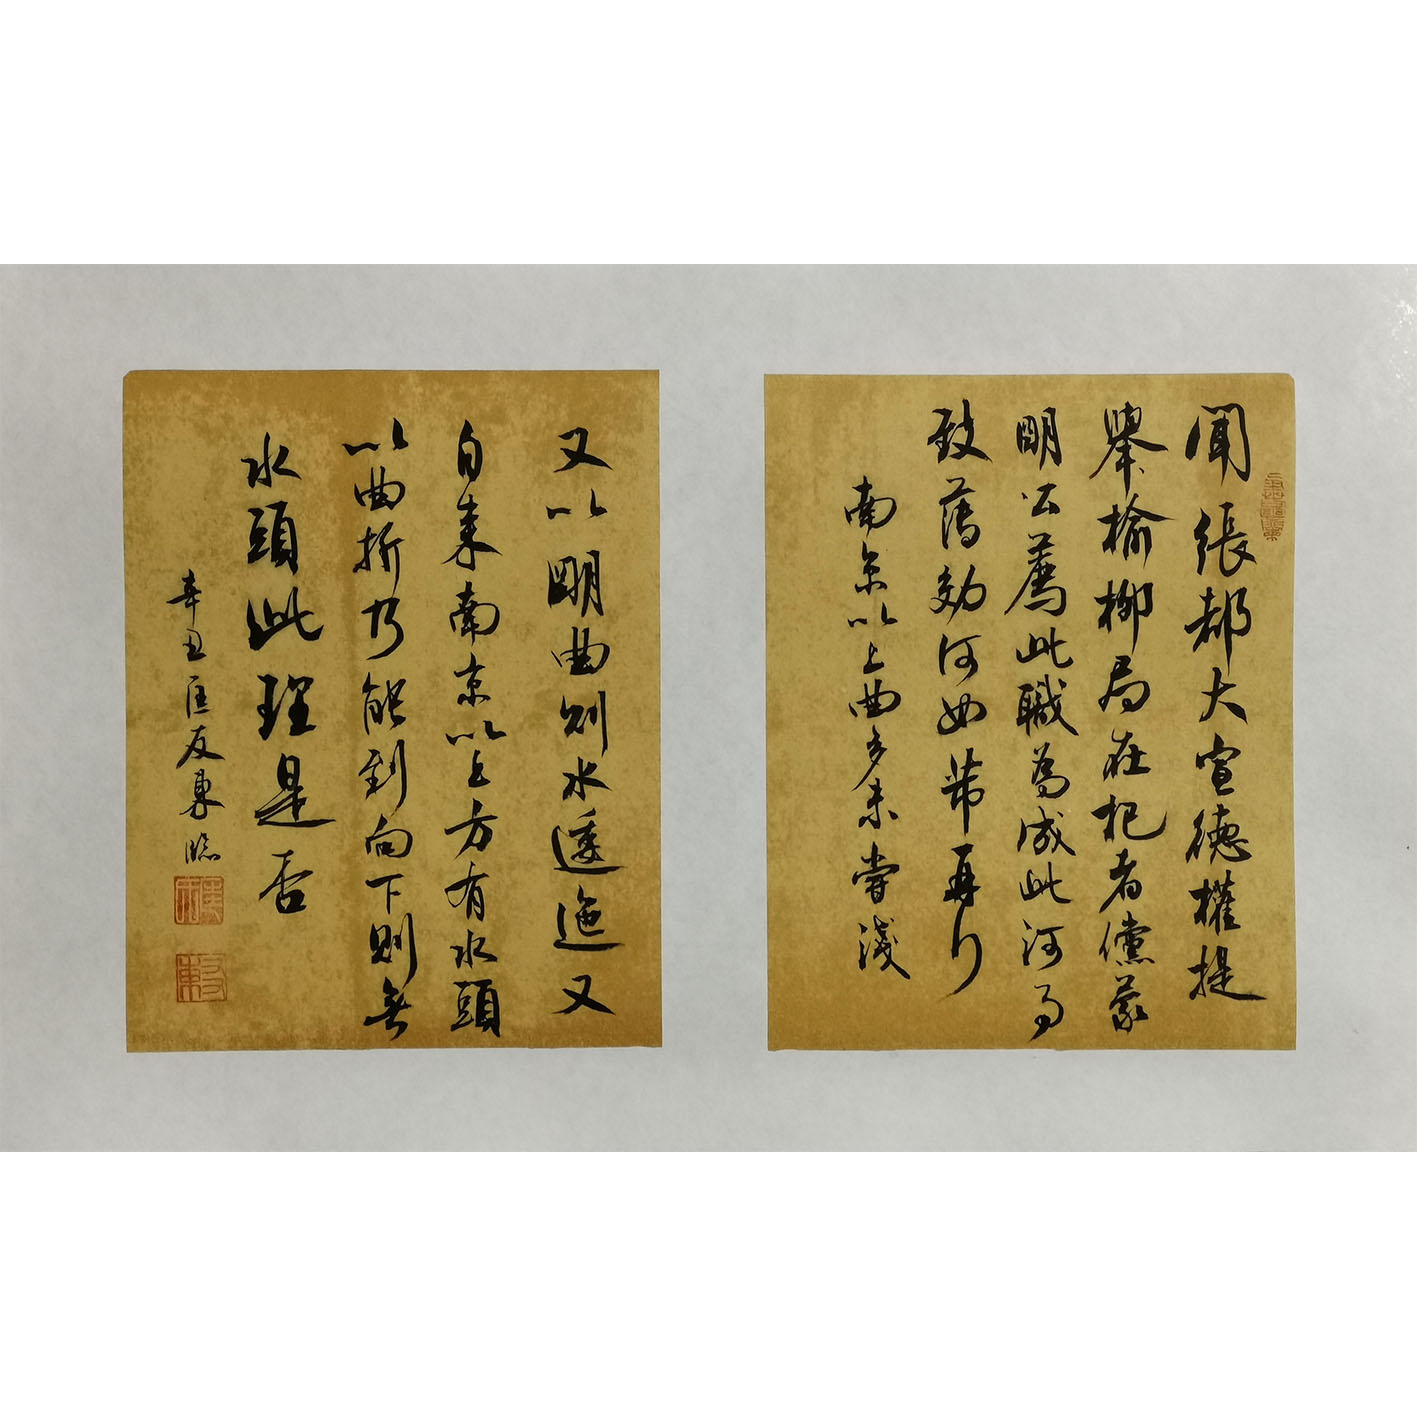 聞張都大宣德權提
舉榆柳局在杞者儻蒙
明公薦此職為成此河事
致薄効何如芾再行
南京以上曲多未嘗淺
又以明曲則水逶迤又
自來南京以上方有水頭
以曲折乃能到向下則無
水頭此理是否
辛丑匡友東臨